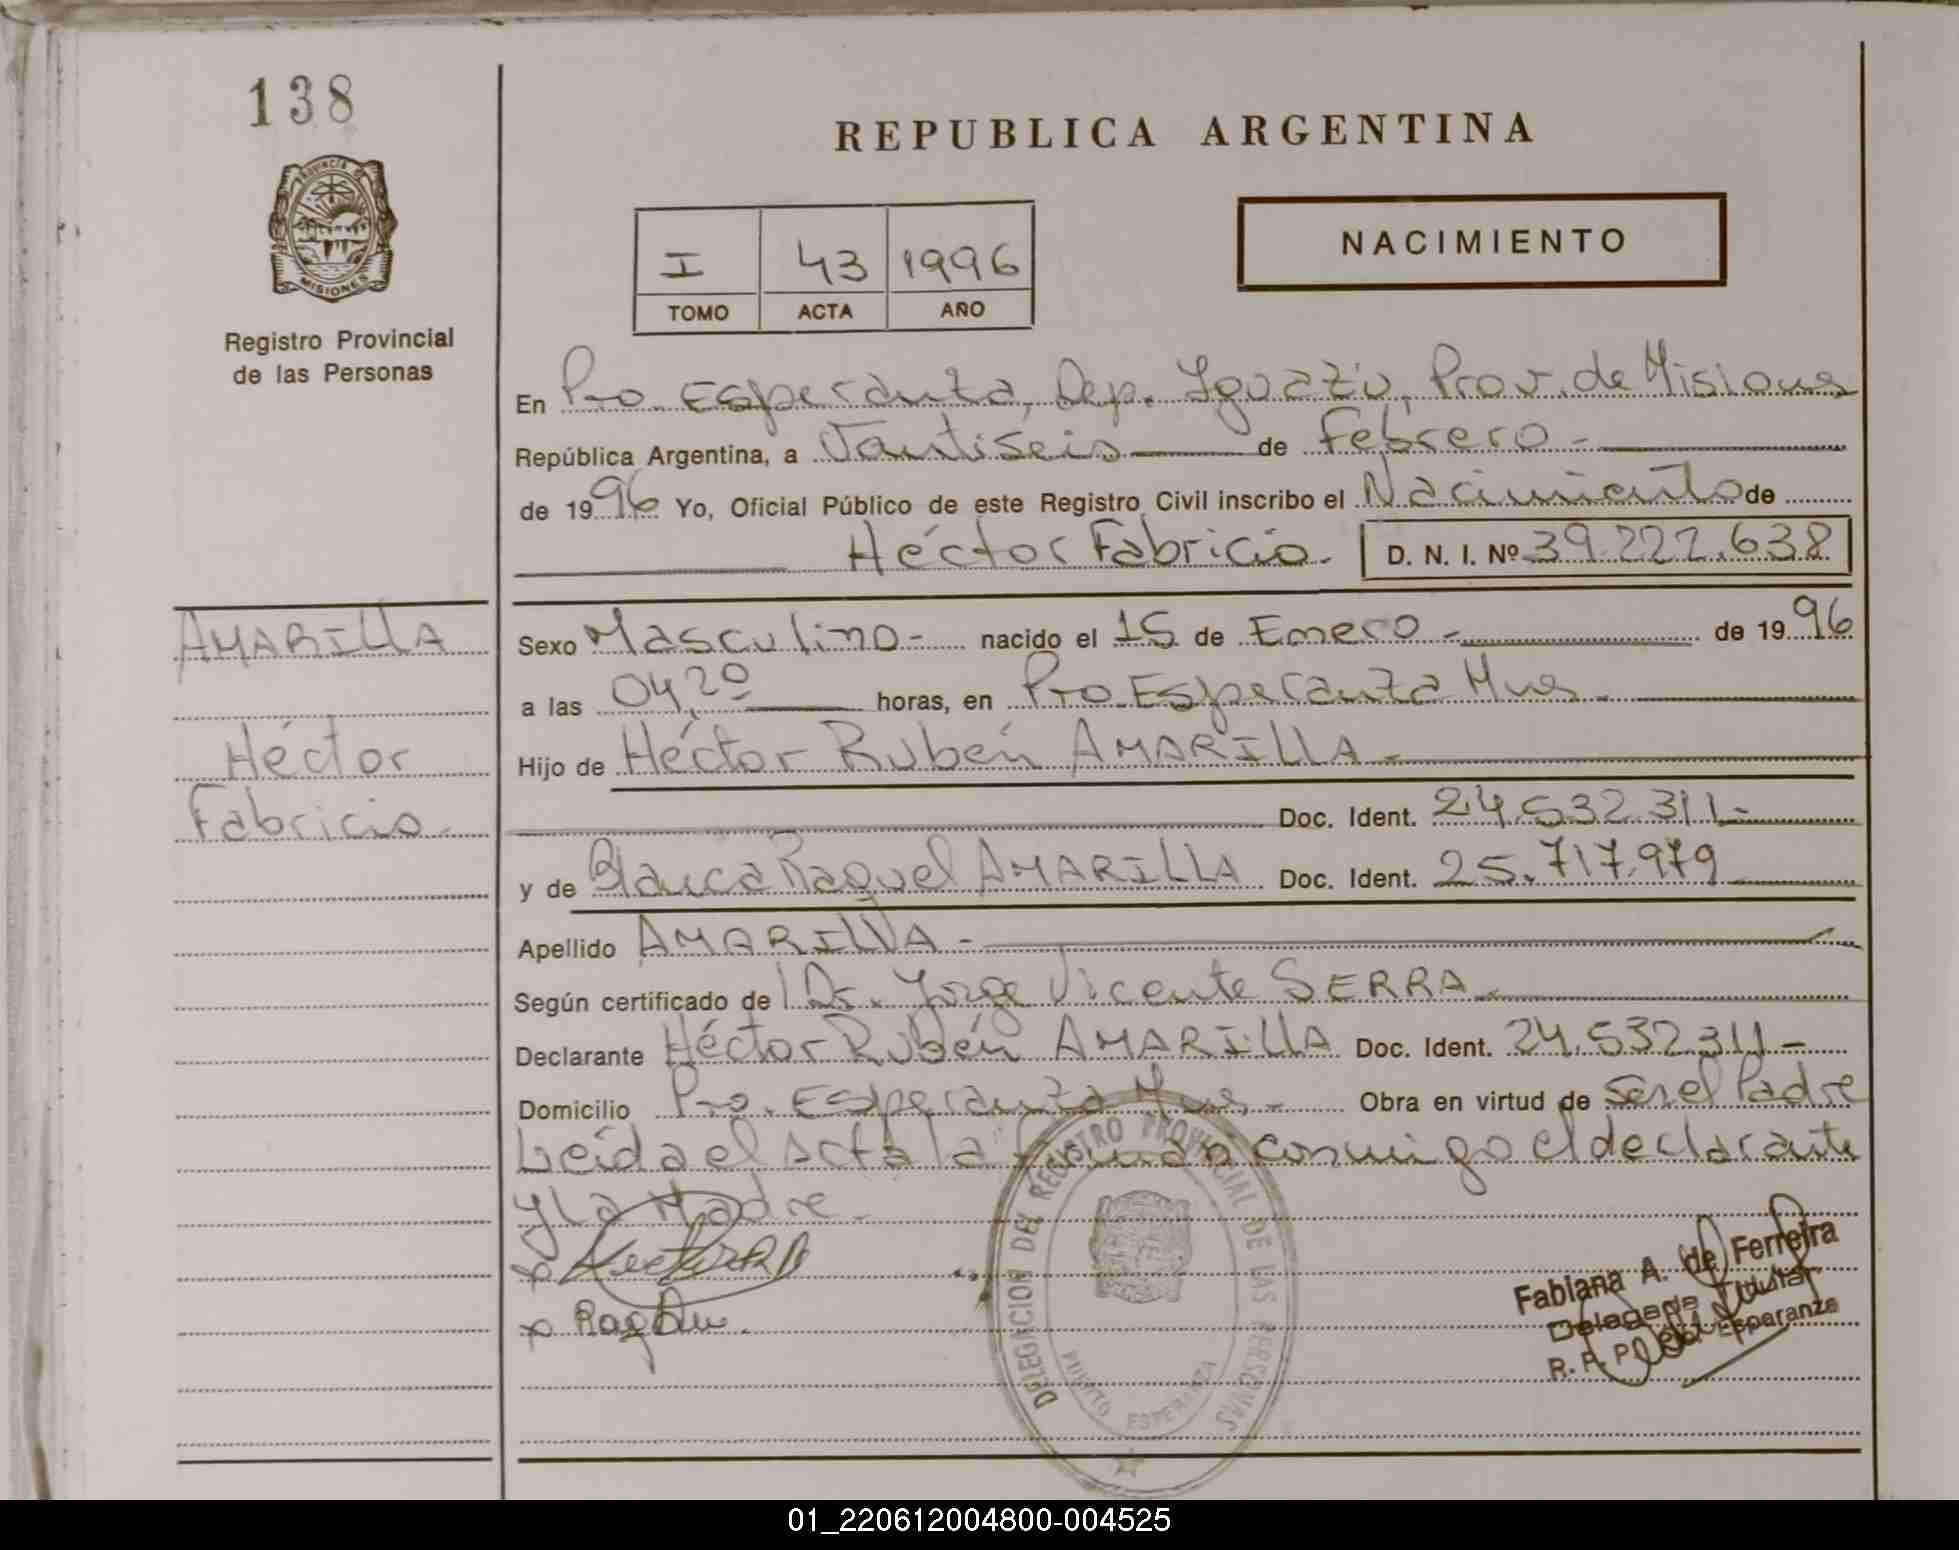 138
PROVINCIA DE
MISIONES
Registro Provincial
de las Personas
REPUBLICA ARGENTINA
NACIMIENTO
I 43 1996
TOMO ACTA AÑO
En Pto. Esperanza, Dep. Iguazú, Prov. de Misiones
República Argentina, a Vantiseis de Febrero.-
de 1996 Yo, Oficial Público de este Registro Civil inscribo el Nacimiento de
Héctor Fabricio. D. N. I. Nº 39.222.638
AMARILLA
Héctor
Fabricio.
Sexo Masculino.- nacido el 15 de Enero.- de 1996
a las 04,20 horas, en Pto. Esperanza Mnes.
Hijo de Héctor Rubén AMARILLA.-
Doc. Ident. 24.532.311.-
y de Blanca Raquel AMARILLA Doc. Ident. 25.717.979
Apellido AMARILLA.-
Según certificado de Dr. Jorge Vicente SERRA.
Declarante Héctor Rubén AMARILLA Doc. Ident. 24.532.311.-
Domicilio Pto. Esperanza Mnes.- Obra en virtud de Ser el Padre
Leída el acta la firman conmigo el declarante
y la Madre.
DELEGACION DEL REGISTRO PROVINCIAL DE LAS PERSONAS
PUERTO ESPERANZA
Fabiana A. de Ferreira
Delegada Titular
R. P. P. Pto. Esperanza
01_220612004800-004525